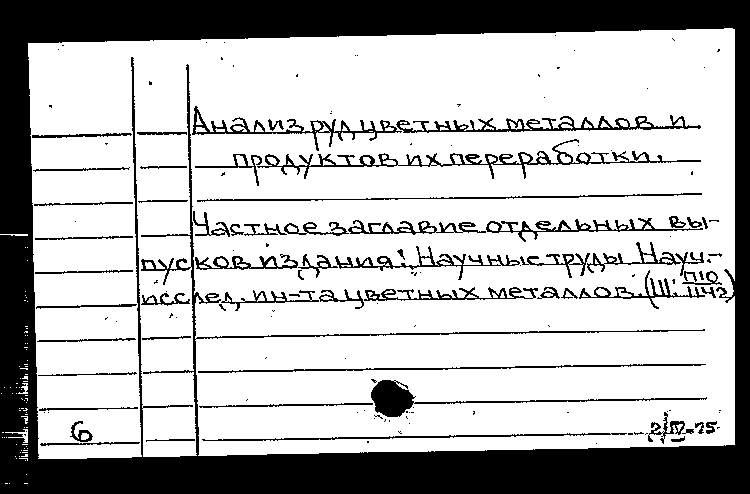 Анализ руд цветных металлов и
продуктов их переработки.
Частное заглавие отдельных вы-
пусков издания: Научные труды Науч.-
исслед. ин-та цветных металлов. (Ш: П10
1142)
6
2/IV-75